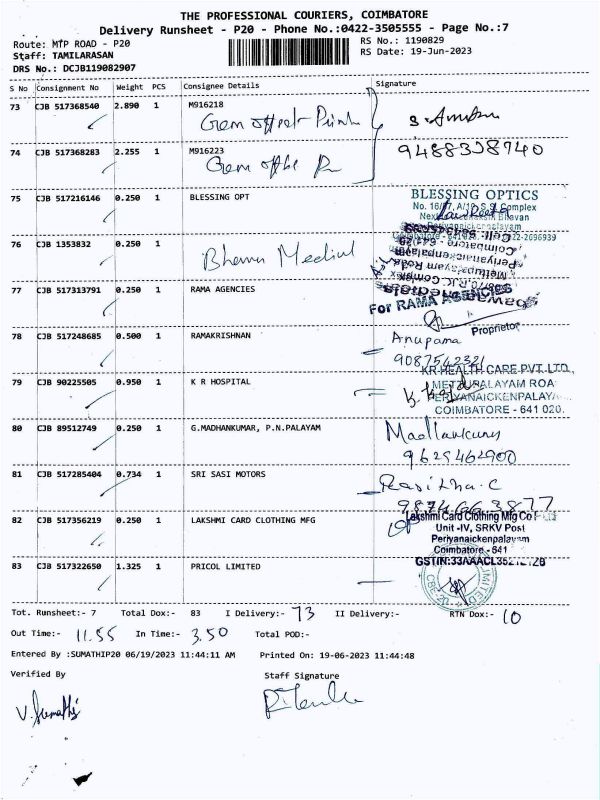 THE PROFESSIONAL COURIERS, COIMBATORE
Delivery Runsheet - P20 - Phone No.:0422-3505555 - Page No.:7
Route: MTP ROAD - P20
RS No.: 1190829
Staff: TAMILARASAN
RS Date: 19-Jun-2023
DRS No.: DCJB119082907
S No Consignment No Weight PCS Consignee Details Signature
73 CJB 517368540 2.890 1 M916218
Gem offset Prink
9488328740
74 CJB 517368283 2.255 1 M916223
Gem offse
75 CJB 517216146 0.250 1 BLESSING OPT
BLESSING OPTICS
76 CJB 1353832 0.250 1
Bhanu Medical
77 CJB 517313791 0.250 1 RAMA AGENCIES
For RAMA AGENCIES
Proprietor
78 CJB 517248685 0.500 1 RAMAKRISHNAN
Anupama
9087542321
79 CJB 90225505 0.950 1 K R HOSPITAL
KR HEALTH CARE PVT. LTD.,
METTUPALAYAM ROA
PERIYANAICKENPALAY
COIMBATORE - 641 020.
80 CJB 89512749 0.250 1 G.MADHANKUMAR, P.N.PALAYAM
Madhankumar
9629462900
81 CJB 517285404 0.734 1 SRI SASI MOTORS
Rasitha.C
9874663877
82 CJB 517356219 0.250 1 LAKSHMI CARD CLOTHING MFG
Lakshmi Card Clothing Mfg Co
Unit -IV, SRKV Post
Periyanaickenpalayam
Coimbatore - 641
83 CJB 517322650 1.325 1 PRICOL LIMITED
Tot. Runsheet:- 7 Total Dox:- 83 I Delivery:- 73 II Delivery:- RTN Dox:- 10
Out Time:- 11.55 In Time:- 3.50 Total POD:-
Entered By :SUMATHIP20 06/19/2023 11:44:11 AM Printed On: 19-06-2023 11:44:48
Verified By Staff Signature
V. Sumathi